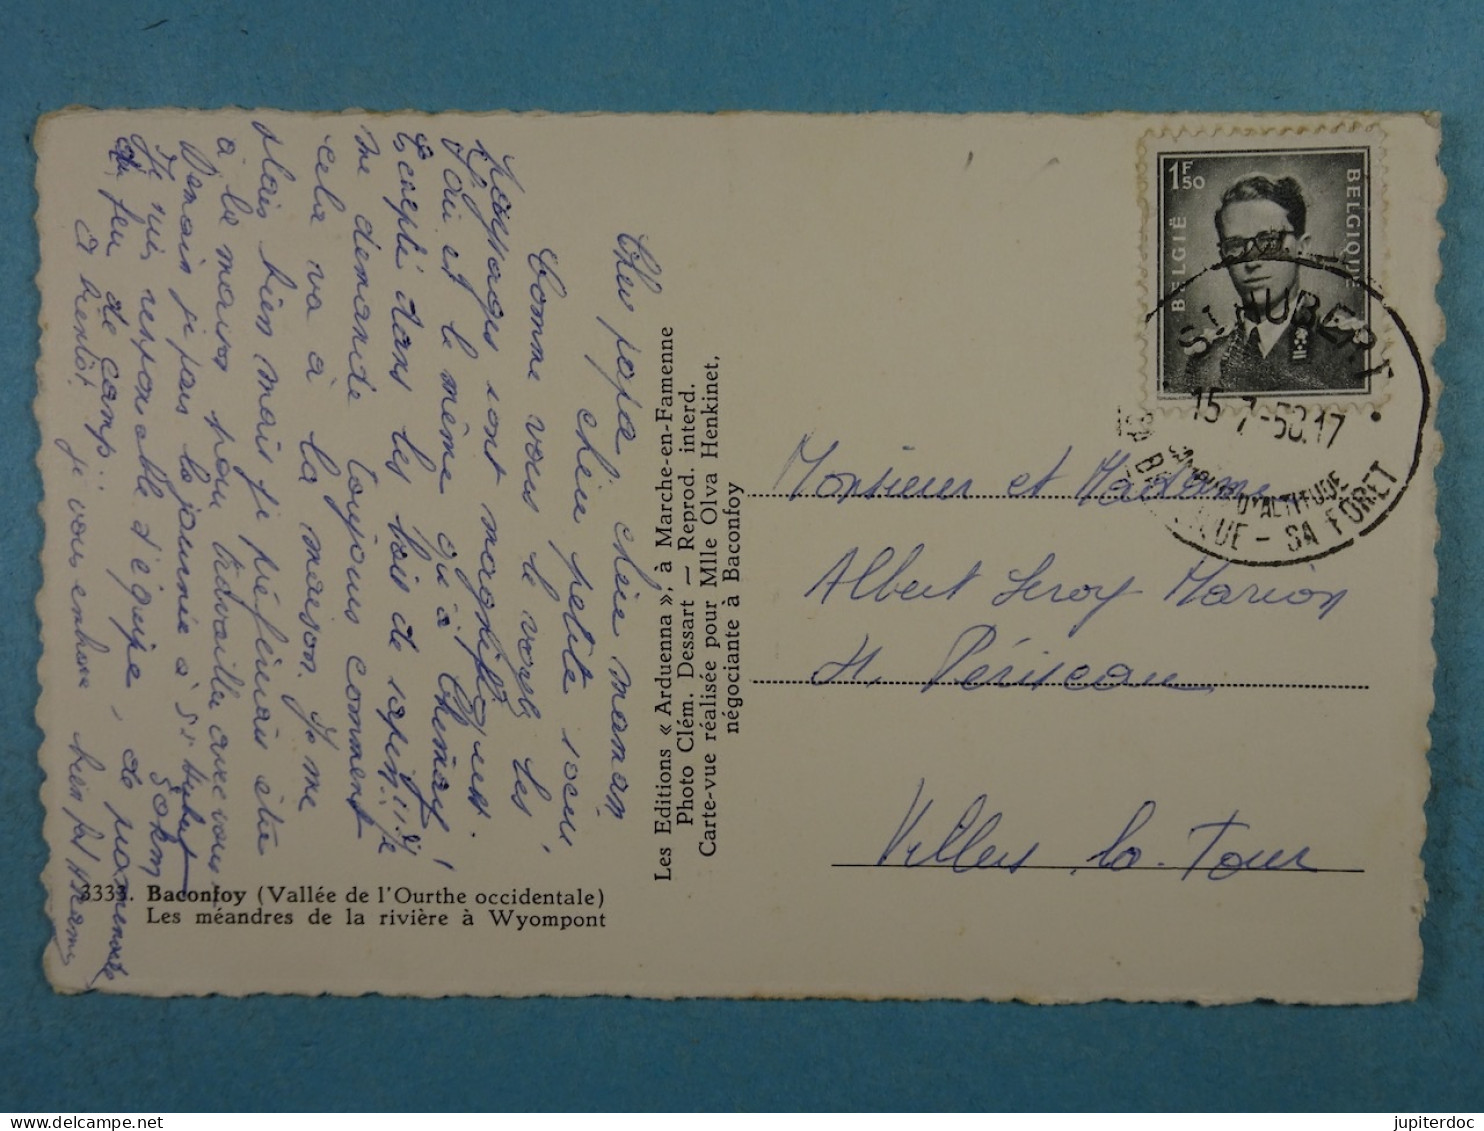 Cher papa chère maman
chère petite soeur,
Comme vous le voyez les
paysages sont magnifiques.
J'ai et le même qu'à Chimay!
Excepté dans les bois de sapin!!! Je
me demande toujours comment
cela va à la maison. Je me
plais bien mais je préférerais être
à la maison pour travailler avec vous
Demain je pars la journée à St Hubert 50km
Je suis responsable d'équipe, de
du feu de camp..
A bientôt je vous embrasse bien fort
3333. Baconfoy (Vallée de l'Ourthe occidentale)
Les méandres de la rivière à Wyompont
Les Editions « Arduenna », à Marche-en-Famenne
Photo Clém. Dessart — Reprod. interd.
Carte-vue réalisée pour Mlle Olva Henkinet,
négociante à Baconfoy
1F50
BELGIE
BELGIQUE
ST HUBERT
15-7-58.17
D'ALTITUDE
SA FORET
Monsieur et Madame
Albert Leroy Marion
Villers la Tour
jupiterdoc